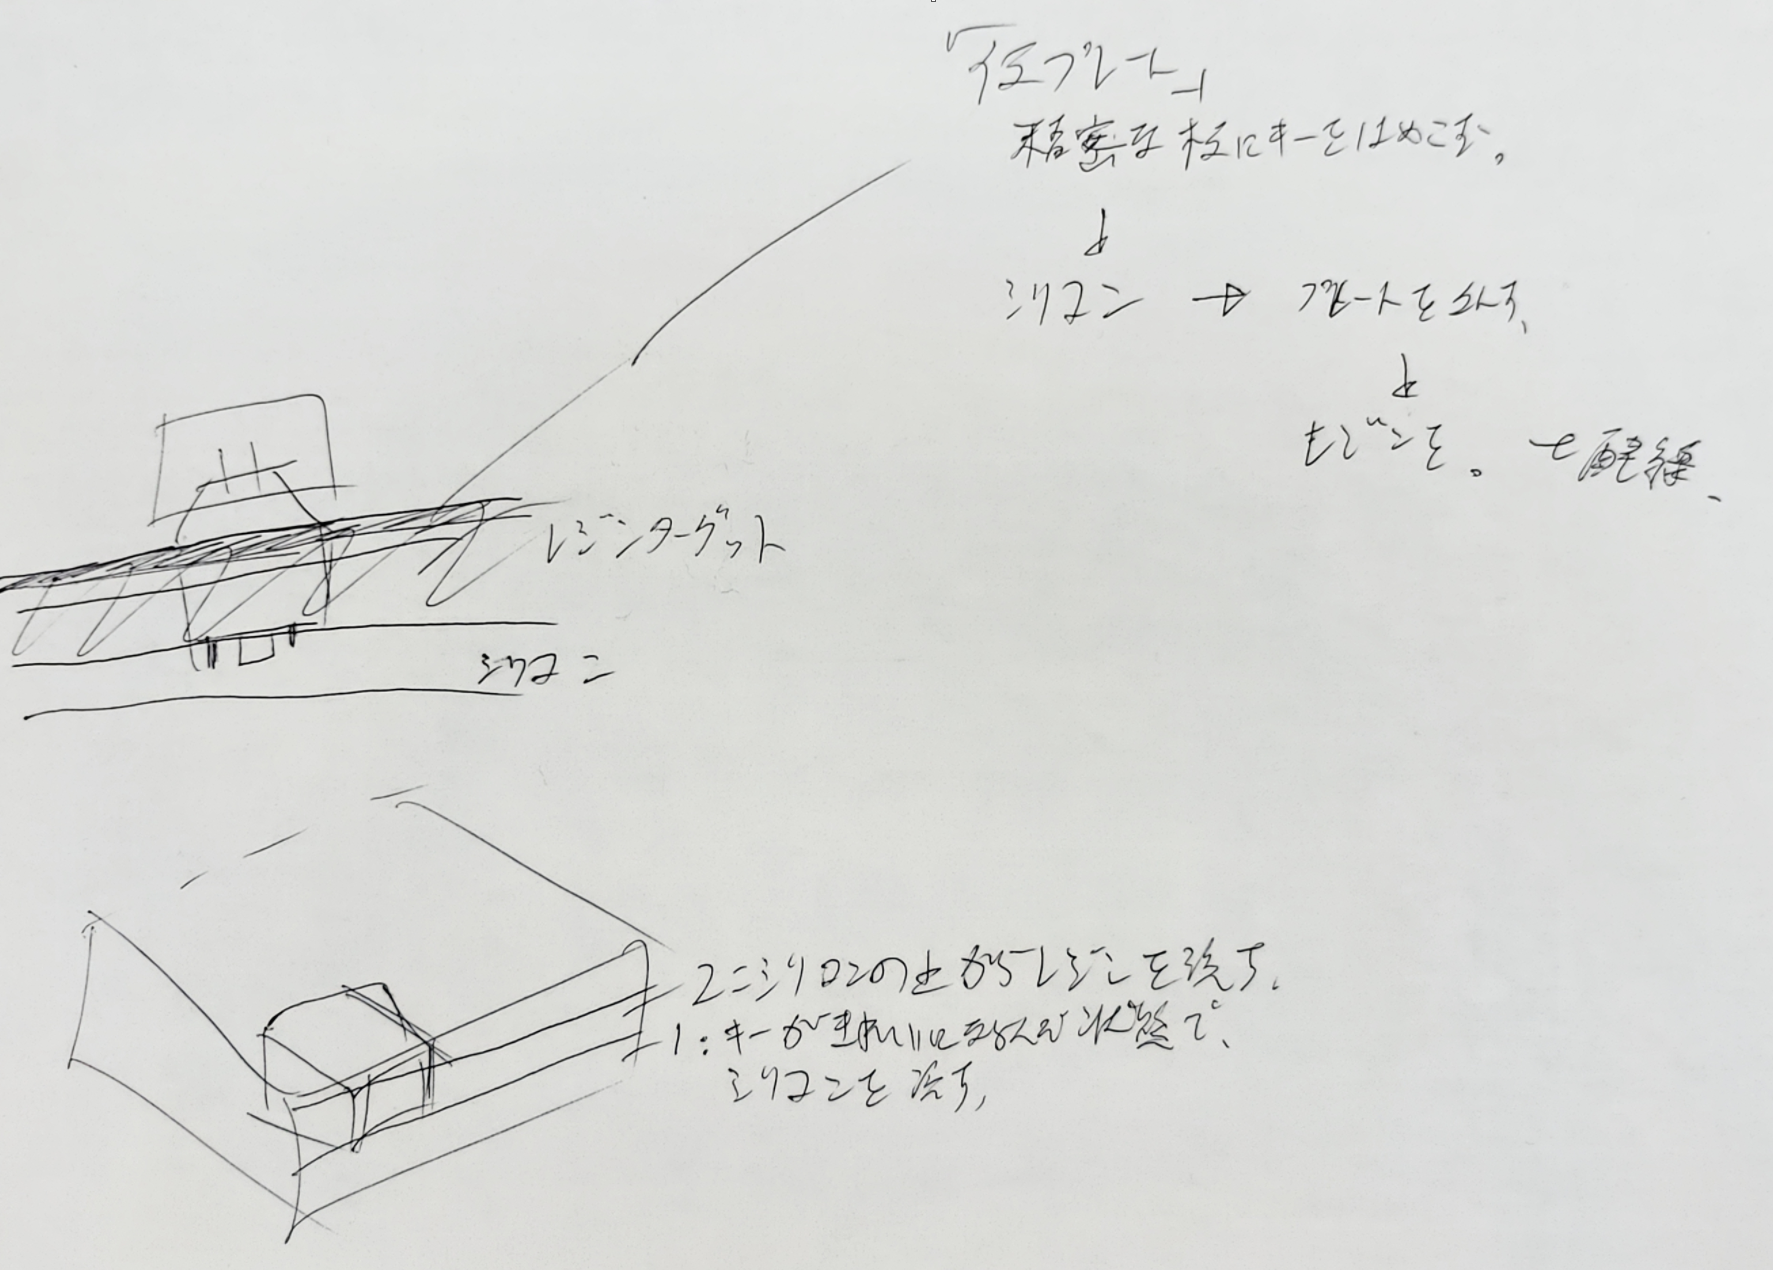 「仮プレート」
精密な板にキーをはめこむ。
↓
シリコン → プレートを外す、
↓
レジンを。 → 配線、
レジンターゲット
シリコン
2:シリコンの上からレジンを流す。
1:キーがキレイにならんだ状態で、
シリコンを流す、